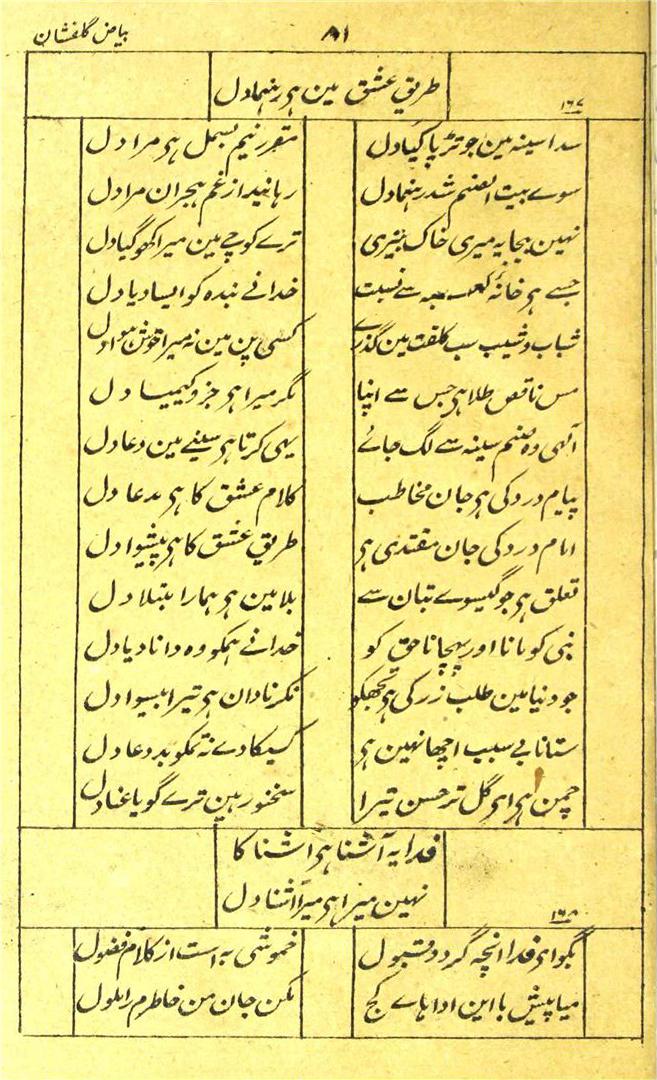 بیاض گلفشان
۸۱
۱۶۷
طریق عشق مین ہر رہنما دل
سدا سینہ مین جو تڑپا کیا دل
مقرر نیم بسمل ہر مرا دل
سوے بیت الصنم شد رہنما دل
رہانید از غم ہجران مرا دل
نہین بیجا یہ میری خاک بیزی
ترے کوچے مین میرا کھو گیا دل
جسے ہر خانۂ کعبہ سے نسبت
خدا نے بندہ کو ایسا دیا دل
شباب و شیب سب کلفت مین گذرے
کسی پن مین نہ میرا خوش ہوا دل
مس ناقص طلا ہر جس سے اپنا
مگر میرا ہر جزو کیمیا دل
الٰہی وہ صنم سینہ سے لگ جائے
یہی کرتا ہر سینے مین دعا دل
پیام درد کی ہر جان مخاطب
کلام عشق کا ہر مدعا دل
امام درد کی جان مقتدی ہر
طریق عشق کا ہر پیشوا دل
تعلق ہر جو گیسوے بتان سے
بلا مین ہر ہمارا مبتلا دل
نبی کو مانا اور پہچانا حق کو
خدا نے ہمکو وہ دانا دیا دل
جو دنیا مین طلب زر کی ہر تجھکو
مگر نادان ہر تیرا بیسوا دل
ستانا بے سبب اچھا نہین ہر
کسیکا دے نہ تمکو بد دعا دل
چمن ہر اے گل تر حسن تیرا
سخنور ہین ترے گویا عنادل
فدا یہ آشنا ہر آشنا کا
نہین میرا ہر میرا آشنا دل
۱۶۸
بگو اے فدا انچہ گردد قبول
خموشی بہ است از کلام فضول
میا پیش با این اداہاے کج
مکن جان من خاطرم را ملول